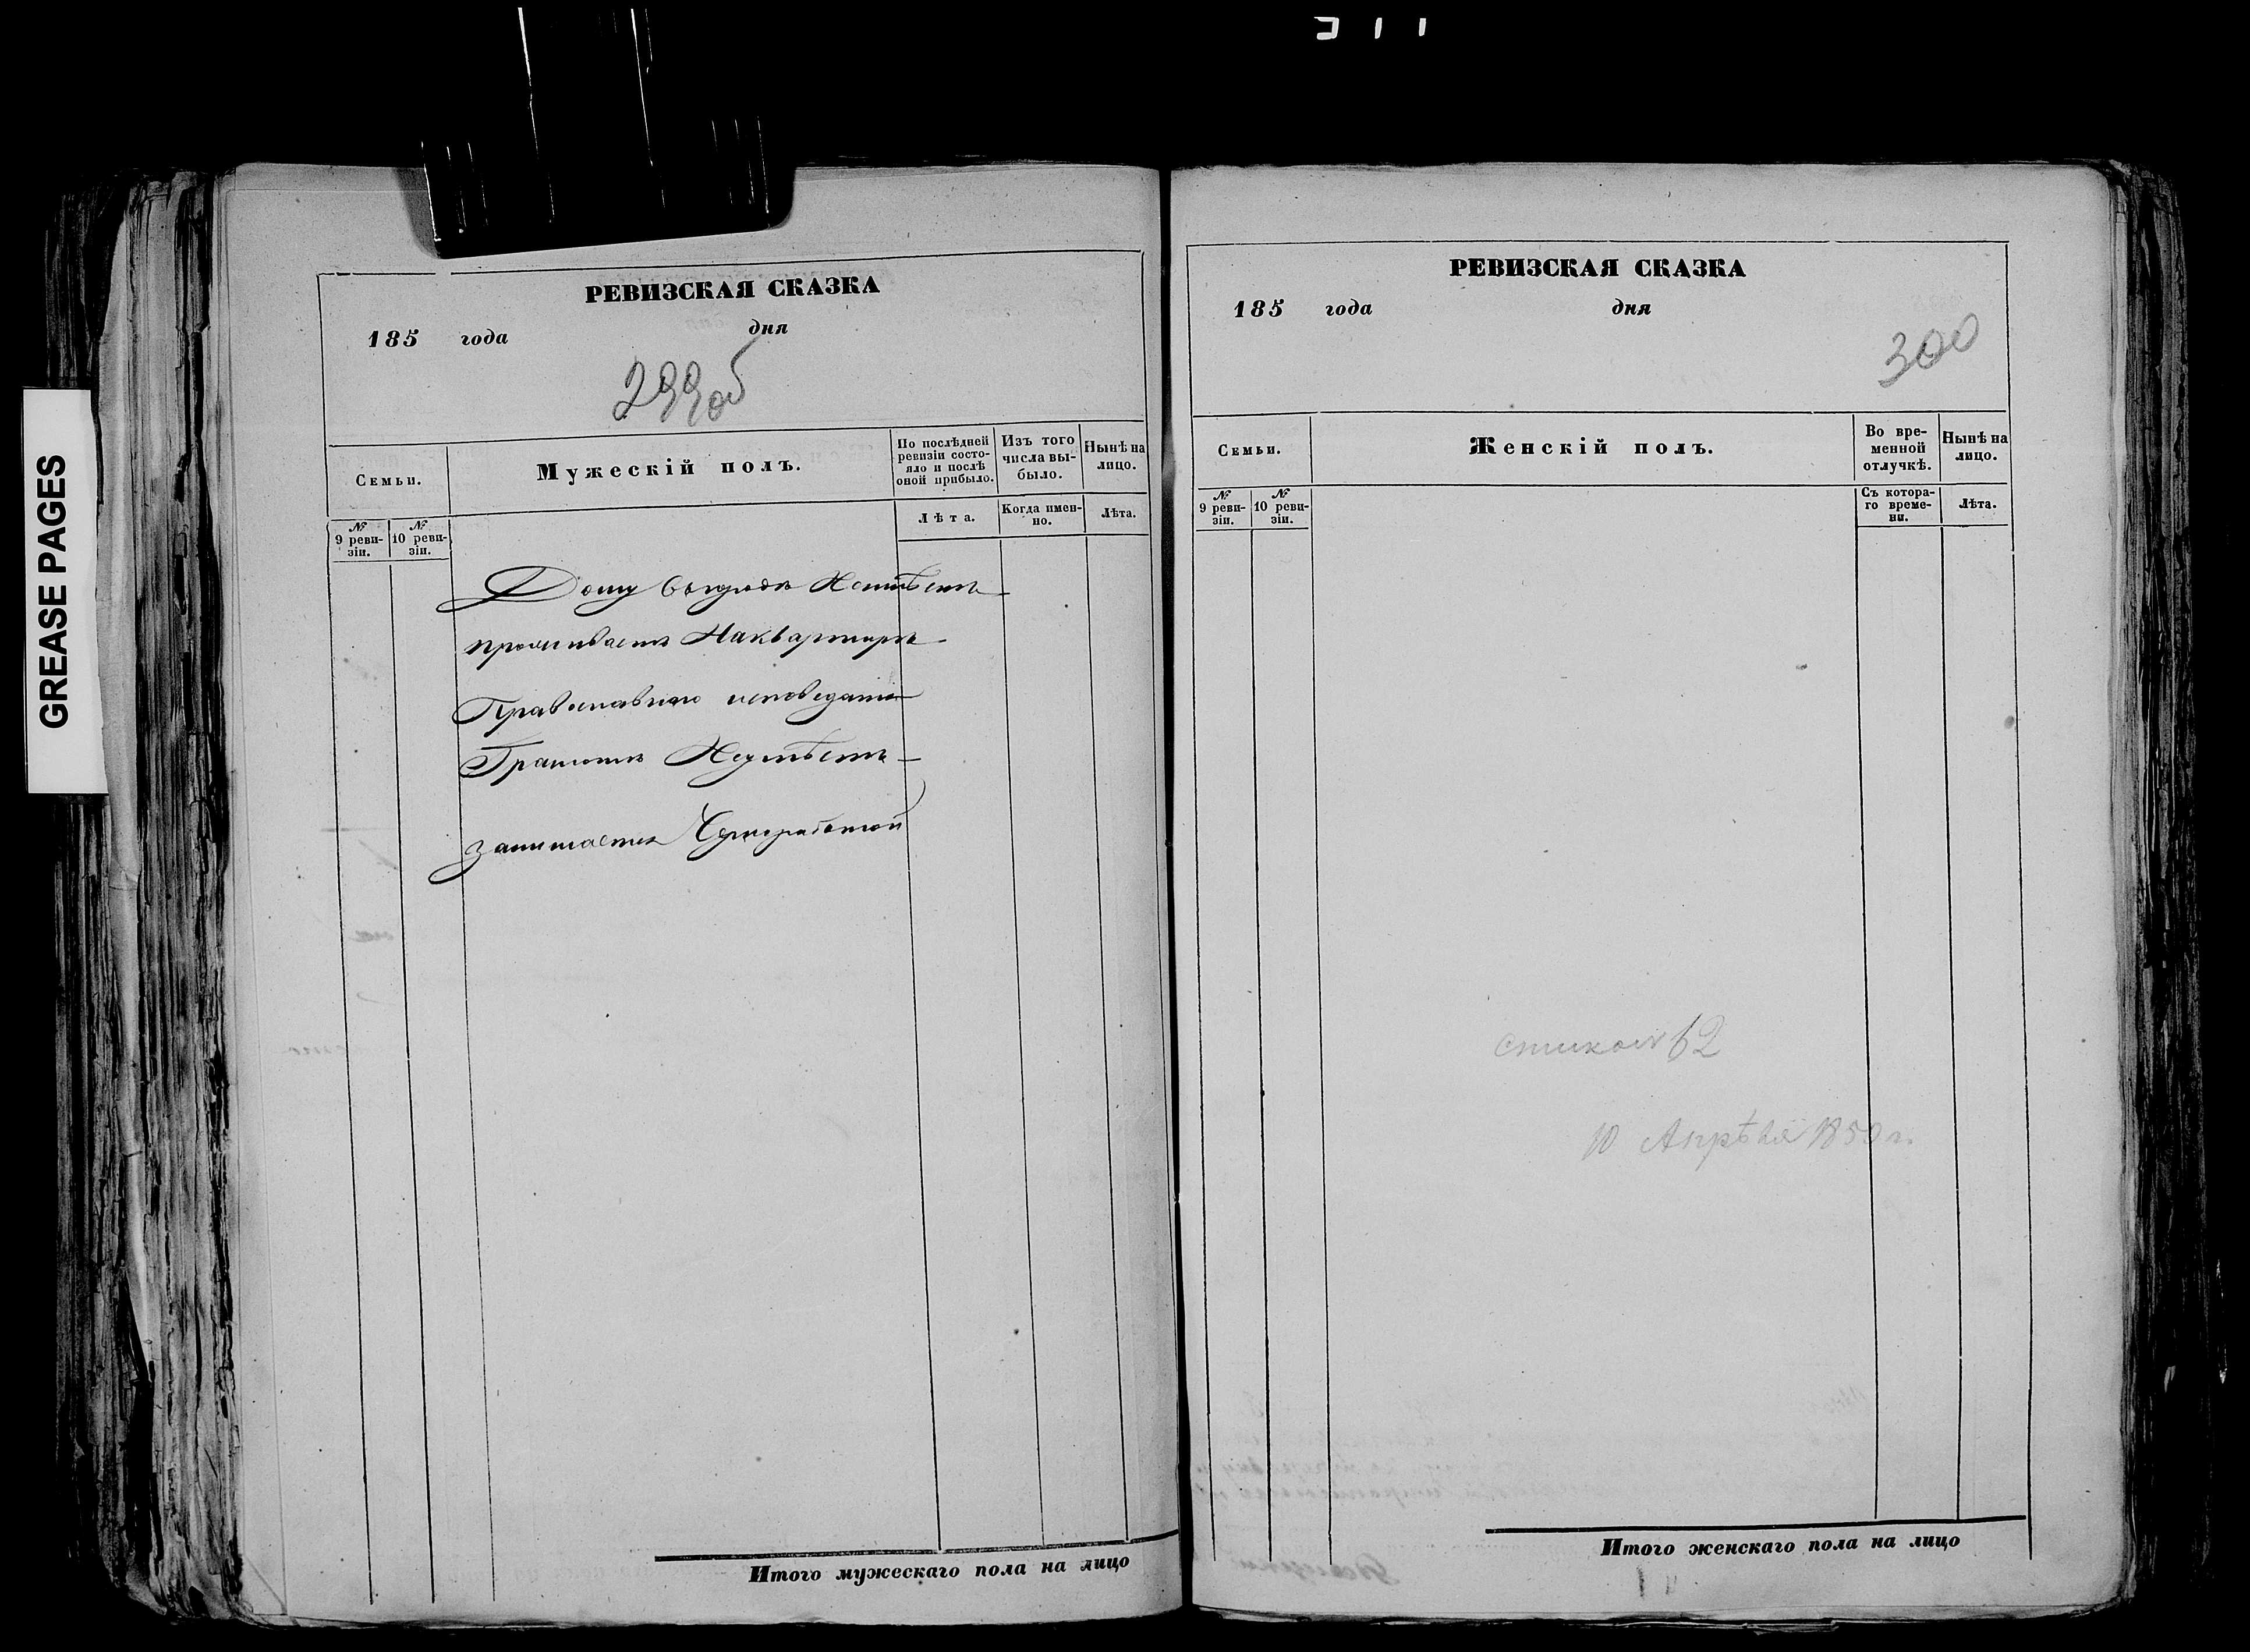 GREASE PAGES
РЕВИЗСКАЯ СКАЗКА
185 года дня
299об
Семьи.
Мужескій полъ.
По послѣдней ревизіи состо-
яло и послѣ оной прибыло.
Изъ того числа вы-
было.
Нынѣ на лицо.
№ 9 реви-
зіи.
№ 10 реви-
зіи.
Лѣта.
Когда имен-
но.
Лѣта.
Дому
проживаетъ Наквартирѣ
Православнаго исповеданія
Грамотѣ Неумѣетъ
занимается Чернработой
Итого мужескаго пола на лицо
РЕВИЗСКАЯ СКАЗКА
185 года дня
300
Семьи.
Женскій полъ.
Во вре-
менной отлучкѣ.
Нынѣ на лицо.
№ 9 реви-
зіи.
№ 10 реви-
зіи.
Съ котора-
го време-
ни.
Лѣта.
10 Апрѣля 1850 г.
Итого женскаго пола на лицо